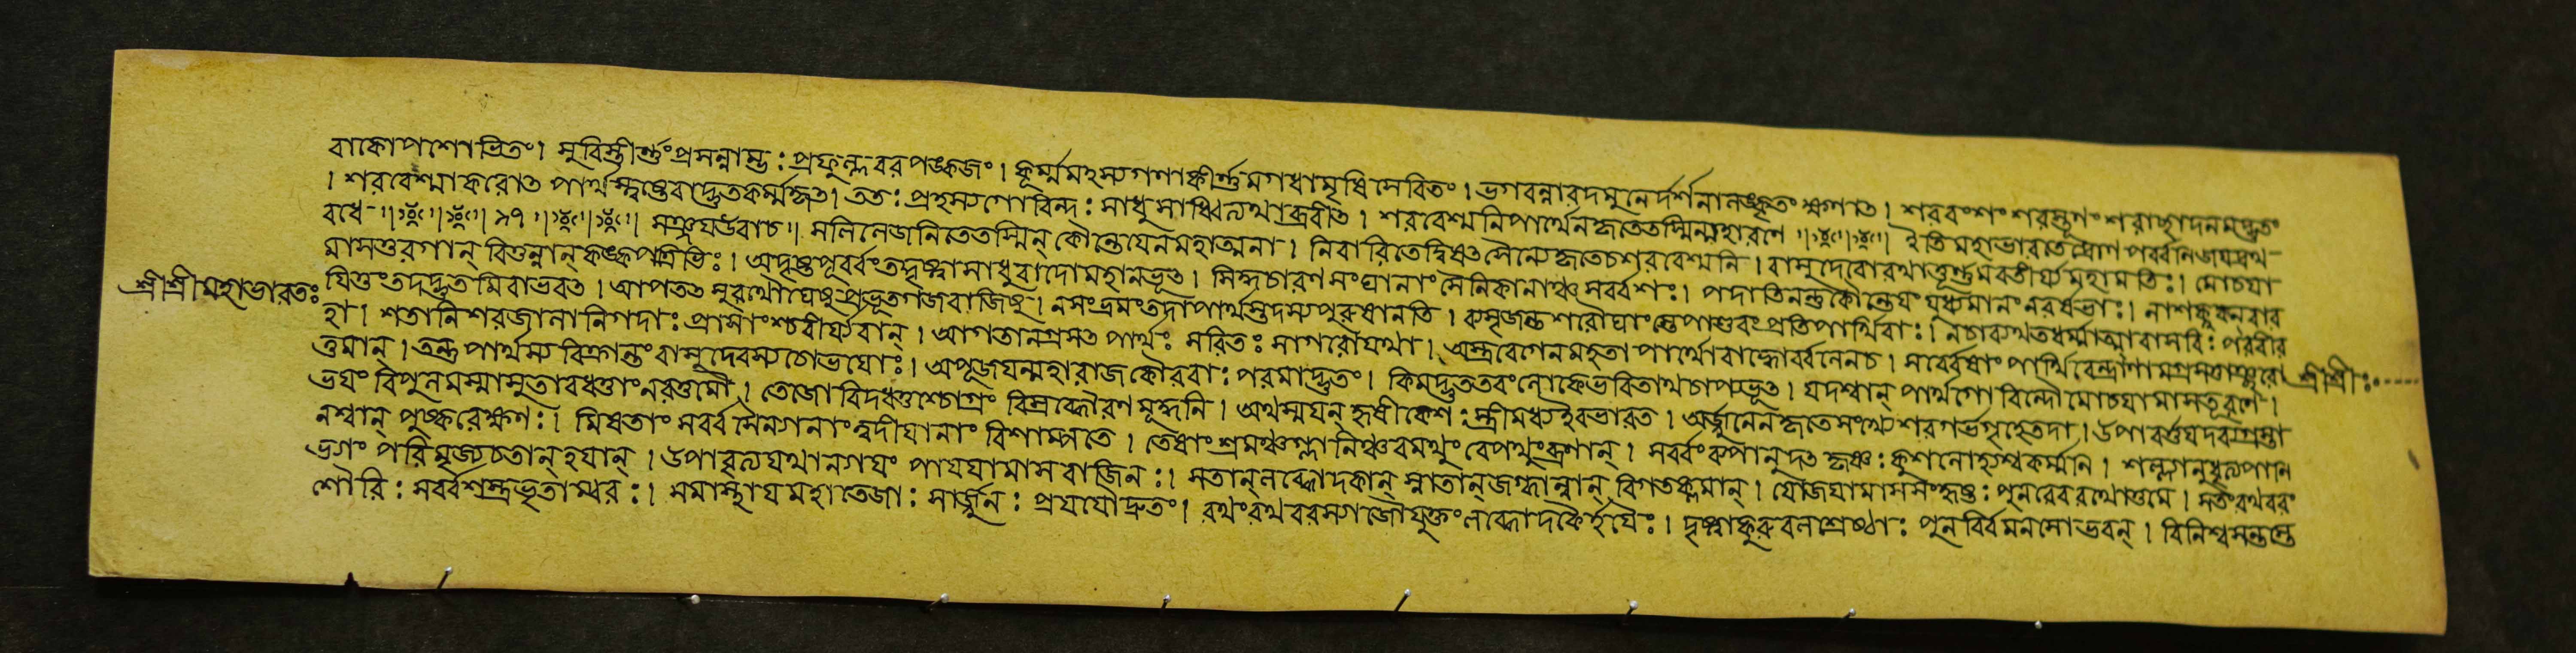 বাকোপশোভিতং। সুবিস্তীর্ণংপ্রসন্নাম্ভঃপ্রফুল্লবরপঙ্কজং। কূর্ম্মমৎস্যগণাকীর্ণমগধামৃষিসেবিতং। ভগবন্নারদমুনের্দর্শনালঙ্কৃতং ক্ষণাৎ। শরবংশং শরস্তূণং শরাচ্ছাদনমদ্ভুতং
। শরবেশ্মাকরোৎ পার্থস্ত্বষ্টেবাদ্ভুতকর্ম্মকৃৎ। ততঃ প্রহস্যগোবিন্দঃ সাধুসাধ্বিত্যথাব্রবীৎ। শরবেশ্মনিপার্থেনকৃতেতস্মিন্মহারণে ইতি মহাভারতে দ্রোণ পর্ব্বনিজয়দ্রথ
বধে ৯৭ সঞ্জয়উবাচ॥ সলিলেজনিতেতস্মিন্ কৌন্তেয়েনমহাত্মনা। নিবারিতেদ্বিষৎসৈন্যেকৃতেচশরবেশ্মনি। বাসুদেবোরথাত্তূর্ণমবতীর্য্যমহামতিঃ। মোচয়া
মাসতুরগান্ বিতুন্নান্কঙ্কপত্রিভিঃ। অদৃষ্টপূর্ব্বংতদ্দৃষ্ট্বাসাধুবাদোমহানভূৎ। সিদ্ধচারণসংঘানাং সৈনিকানাঞ্চসর্ব্বশঃ। পদাতিনন্তুকৌন্তেয়ং যুধ্যমানং নরর্ষভাঃ। নাশক্নুবন্বার
শ্রীশ্রীমহাভারতঃ
য়িতুং তদদ্ভুতমিবাভবৎ। আপতৎসুরথৌঘেষুপ্রভূতগজবাজিষু। নসংভ্রমংতদাপার্থস্তদস্যপুরুষানতি। ব্যসৃজন্তশরৌঘাংস্তেপাণ্ডবংপ্রতিপার্থিবাঃ। নচাব্যথতধর্ম্মাত্মাবাসবিঃ পরবীর
হা। শতানিশরজালানিগদাঃ প্রাসাংশ্চবীর্য্যবান্। আগতানগ্রসৎ পার্থঃ সরিতঃ সাগরোযথা। অস্ত্রবেগেনমহতা পার্থোবাহ্বোর্ব্বলেনচ। সর্ব্বেষাং পার্থিবেন্দ্রাণামগ্রসত্তাঞ্ছরো
শ্রীশ্রীঃ
ত্তমান্। তত্তু পার্থস্য বিক্রান্তংবাসুদেবস্যচোভয়োঃ। অপূজয়ন্মহারাজকৌরবাঃ পরমাদ্ভুতং। কিমদ্ভুততরংলোকেভবিতাথচাপ্যভূৎ। যদশ্বান্ পার্থগোবিন্দৌমোচয়ামাসতূরণে।
ভয়ং বিপুলমস্মাসুতাবধত্তাংনরোত্তমৌ। তেজোবিদধতুশ্চোগ্রং বিস্রব্ধৌরণমূর্দ্ধনি। অথস্ময়ন্ হৃষীকেশঃ স্ত্রীমধ্যইবভারত। অর্জ্জুনেনকৃতেসংখ্যেশরগর্ভগৃহেতদা। উপাবর্ত্তয়দব্যগ্রস্তা
নশ্বান্ পুষ্করেক্ষণঃ। মিষতাং সর্ব্বসৈন্যানাং ত্বদীয়ানাং বিশাম্পতে। তেষাং শ্রমঞ্চগ্লানিঞ্চবমথুংবেপথুংব্রণান্। সর্ব্বংব্যপানুদৎ কৃষ্ণঃ কুশলোহ্যশ্বকর্ম্মণি। শল্যানুদ্ধৃত্যপাণি
ভ্যাং পরিমৃজ্যচতান্হয়ান্। উপাবৃত্যযথান্যায়ং পায়য়ামাসবাজিনঃ। সতান্লব্ধোদকান্ স্নাতান্জগ্ধান্নান্ বিগতক্লমান্। যোজয়ামাসসংহৃষ্টঃ পুনরেবরথোত্তমে। সতংরথবরং
শৌরিঃ সর্ব্বশস্ত্রভৃতাম্বরঃ। সমাস্থায়মহাতেজাঃ সার্জ্জুনঃ প্রযযৌদ্রুতং। রথংরথবরস্যাজৌযুক্তংলব্ধোদকৈর্হয়ৈঃ। দৃষ্ট্বাকুরুবলশ্রেষ্ঠাঃ পুনর্ব্বিমনসোভবন্। বিনিশ্বসন্তস্তে